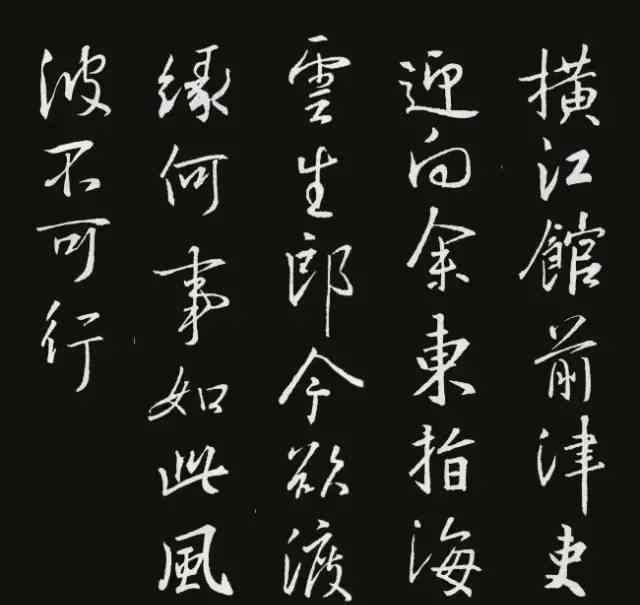 橫江館前津吏
迎向余東指海
雲生郎今欲渡
緣何事如此風
波不可行